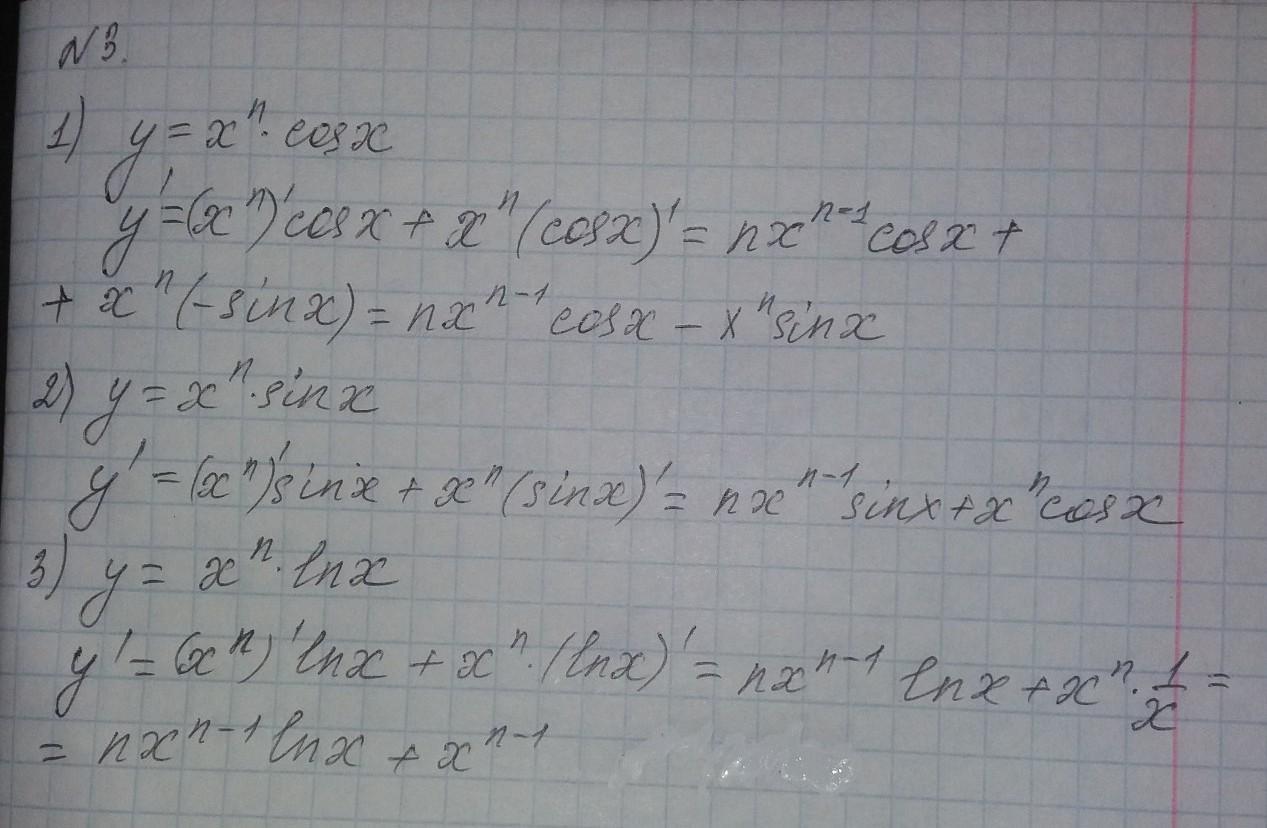 N3.
1) y = xⁿ · cosx
y' = (xⁿ)'cosx + xⁿ(cosx)' = nxⁿ⁻¹cosx +
+ xⁿ(-sinx) = nxⁿ⁻¹cosx - xⁿsinx
2) y = xⁿ · sinx
y' = (xⁿ)'sinx + xⁿ(sinx)' = nxⁿ⁻¹sinx + xⁿcosx
3) y = xⁿ · lnx
y' = (xⁿ)'lnx + xⁿ · (lnx)' = nxⁿ⁻¹ lnx + xⁿ · 1/x =
= nxⁿ⁻¹lnx + xⁿ⁻¹